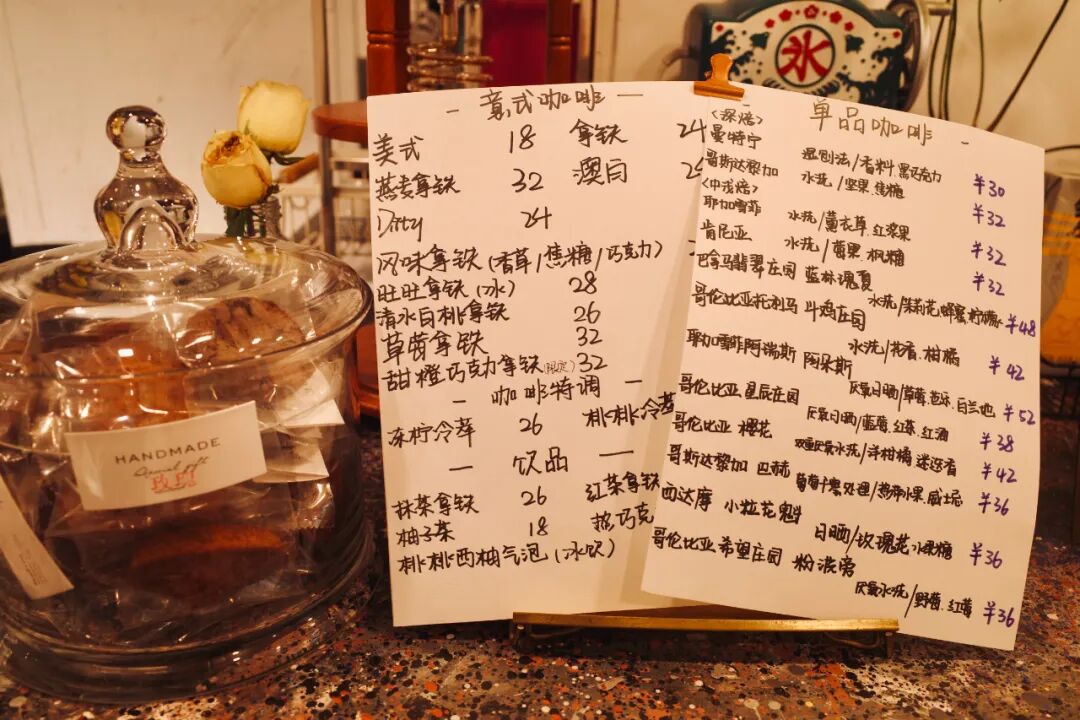 氷
HANDMADE
意式咖啡
美式 18 拿铁 24
燕麦拿铁 32 澳白
Dirty 24
风味拿铁(香草/焦糖/巧克力)
旺旺拿铁(冰) 28
清水白桃拿铁 26
草莓拿铁 32
甜橙巧克力拿铁(限定) 32
咖啡特调
冻柠冷萃 26 桃桃冷萃
饮品
抹茶拿铁 26 红茶拿铁
柚子茶 18 热巧克
桃桃西柚气泡(冰饮)
单品咖啡
<深焙>
曼特宁 湿刨法/香料.黑巧克力 ¥30
哥斯达黎加 水洗/坚果.焦糖 ¥32
<中浅焙>
耶加雪菲 水洗/薰衣草.红浆果 ¥32
肯尼亚 水洗/莓果.枫糖 ¥32
巴拿马翡翠庄园 蓝标瑰夏 水洗/茉莉花.蜂蜜.柠檬 ¥48
哥伦比亚托利马 斗鸡庄园 水洗/花香.柑橘 ¥42
耶加雪菲阿瑞斯 陶朵斯 厌氧日晒/草莓.芭乐.白兰地 ¥52
哥伦比亚 星辰庄园 厌氧日晒/蓝莓.红茶.红酒 ¥38
哥伦比亚 樱花 双重厌氧水洗/洋柑橘.迷迭香 ¥42
哥斯达黎加 巴赫 葡萄干蜜处理/热带水果.威士忌 ¥36
西达摩 小粒花魁 日晒/玫瑰花.水果糖 ¥36
哥伦比亚 希望庄园 粉波旁 厌氧水洗/野莓.红莓 ¥36